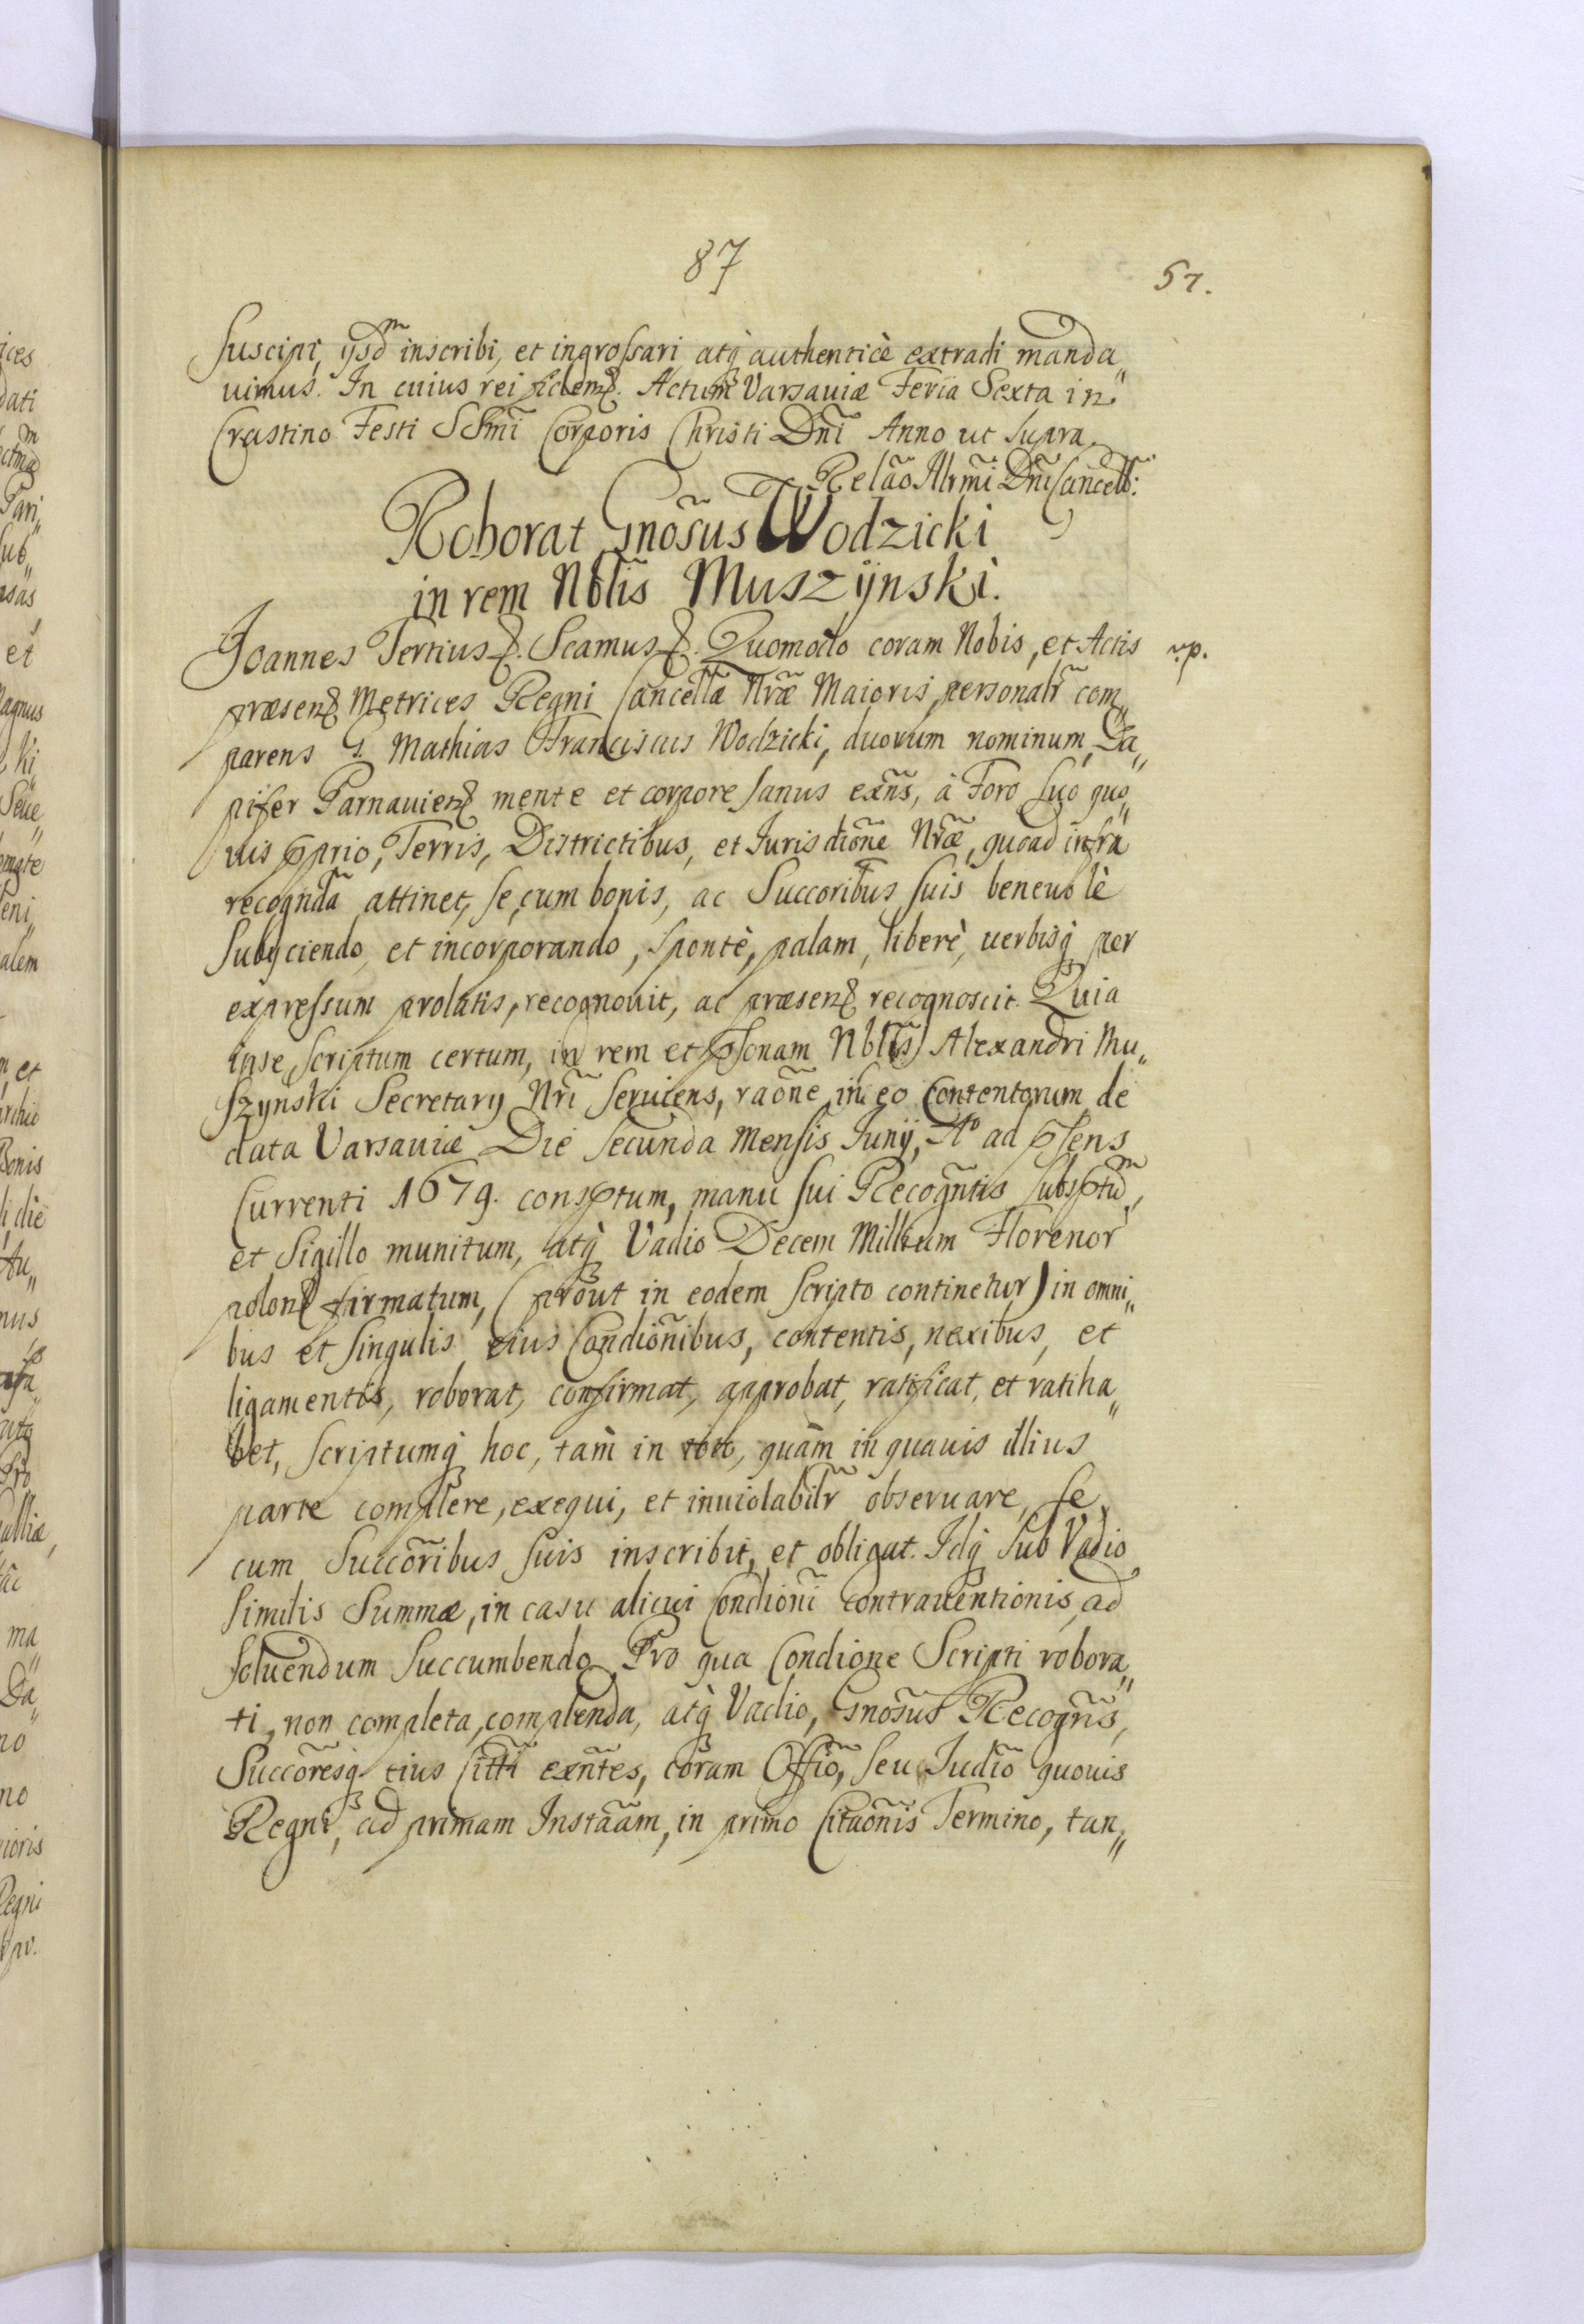 87
57.
suscipi, ijsd͠m inscribi, et ingrossari atq̀ʒ authenticè extradi manda„
uimus. In cuius rei fidemꝫ. Actum Varsauiæ Feria Sexta in
Crastino Festi SS͠mi Corporis Christi Dn͠i Anno ut supra.
Relão Illr͠mi Dn͠i Cancell͠:
Roborat Gnõsus Wodzicki
in rem Nbl͠is Muszÿnski.
Joannes Tertiusꝫ. Scamusꝫ. Quomodo coram Nobis, et Actis
v.p.
præsenꝫ Metrices Regni Cancell͠æ Nr͠æ Maioris personalr͠ com„
parens G. Mathias Franciscus Wodzicki, duorum nominum, Da„
pifer Parnauienꝫ mente et corpore sanus exñs, à Foro suo quo„
uis ꝓprio, Terris, Districtibus, et Jurisdiõne Nr͠æ, quoad infra
recognd͠a attinet, se, cum bonis, ac Succoribus͠ suis beneuolè
subijciendo, et incorporando, spontè, palam, liberè, uerbisq̀ʒ per
expressum prolatis, recognouit, ac præsenꝫ recognoscit. Quia
ipse, scriptum certum, in rem et ꝑsonam Nbl͠is Alexandri Mu„
szynski Secretarij Nr͠i seruiens, raõne in eo Contentorum de
data Varsauiæ Die secunda Mensis Junij, Aº ad ꝓsens
Currenti 1679. consꝑtum, manu sui Recogñtis subsꝑtu͠m,
et Sigillo munitum, atq̀ʒ Vadio Decem Millium Florenor͠
polonꝫ firmatum, (prout in eodem scripto continetur) in omni„
bus et singulis eius Condiõnibus, contentis, nexibus, et
ligamentis, roborat, confirmat, approbat, ratificat, et ratiha„
bet, scriptumq̀ʒ hoc, tam̀ in toto, quàm in quauis illius
parte complere, exequi, et inuiolabilr͠ obseruare, se
cum Succõribus suis inscribit, et obligat. Idq̀ʒ sub Vadio
similis Summæ, in casu alicui Condiõni contrauentionis, ad
soluendum succumbendo. Pro qua Condione Scripti robora„
ti, non completa, complenda, atq̀ʒ Vadio, Gnõsus Recogñs,
Succõresqʒ eius citt͠i exñtes, coram Offi͠o, seu Judi͠o quouis
Regni, ad primam Instãam, in primo Citaõnis Termino, tan„